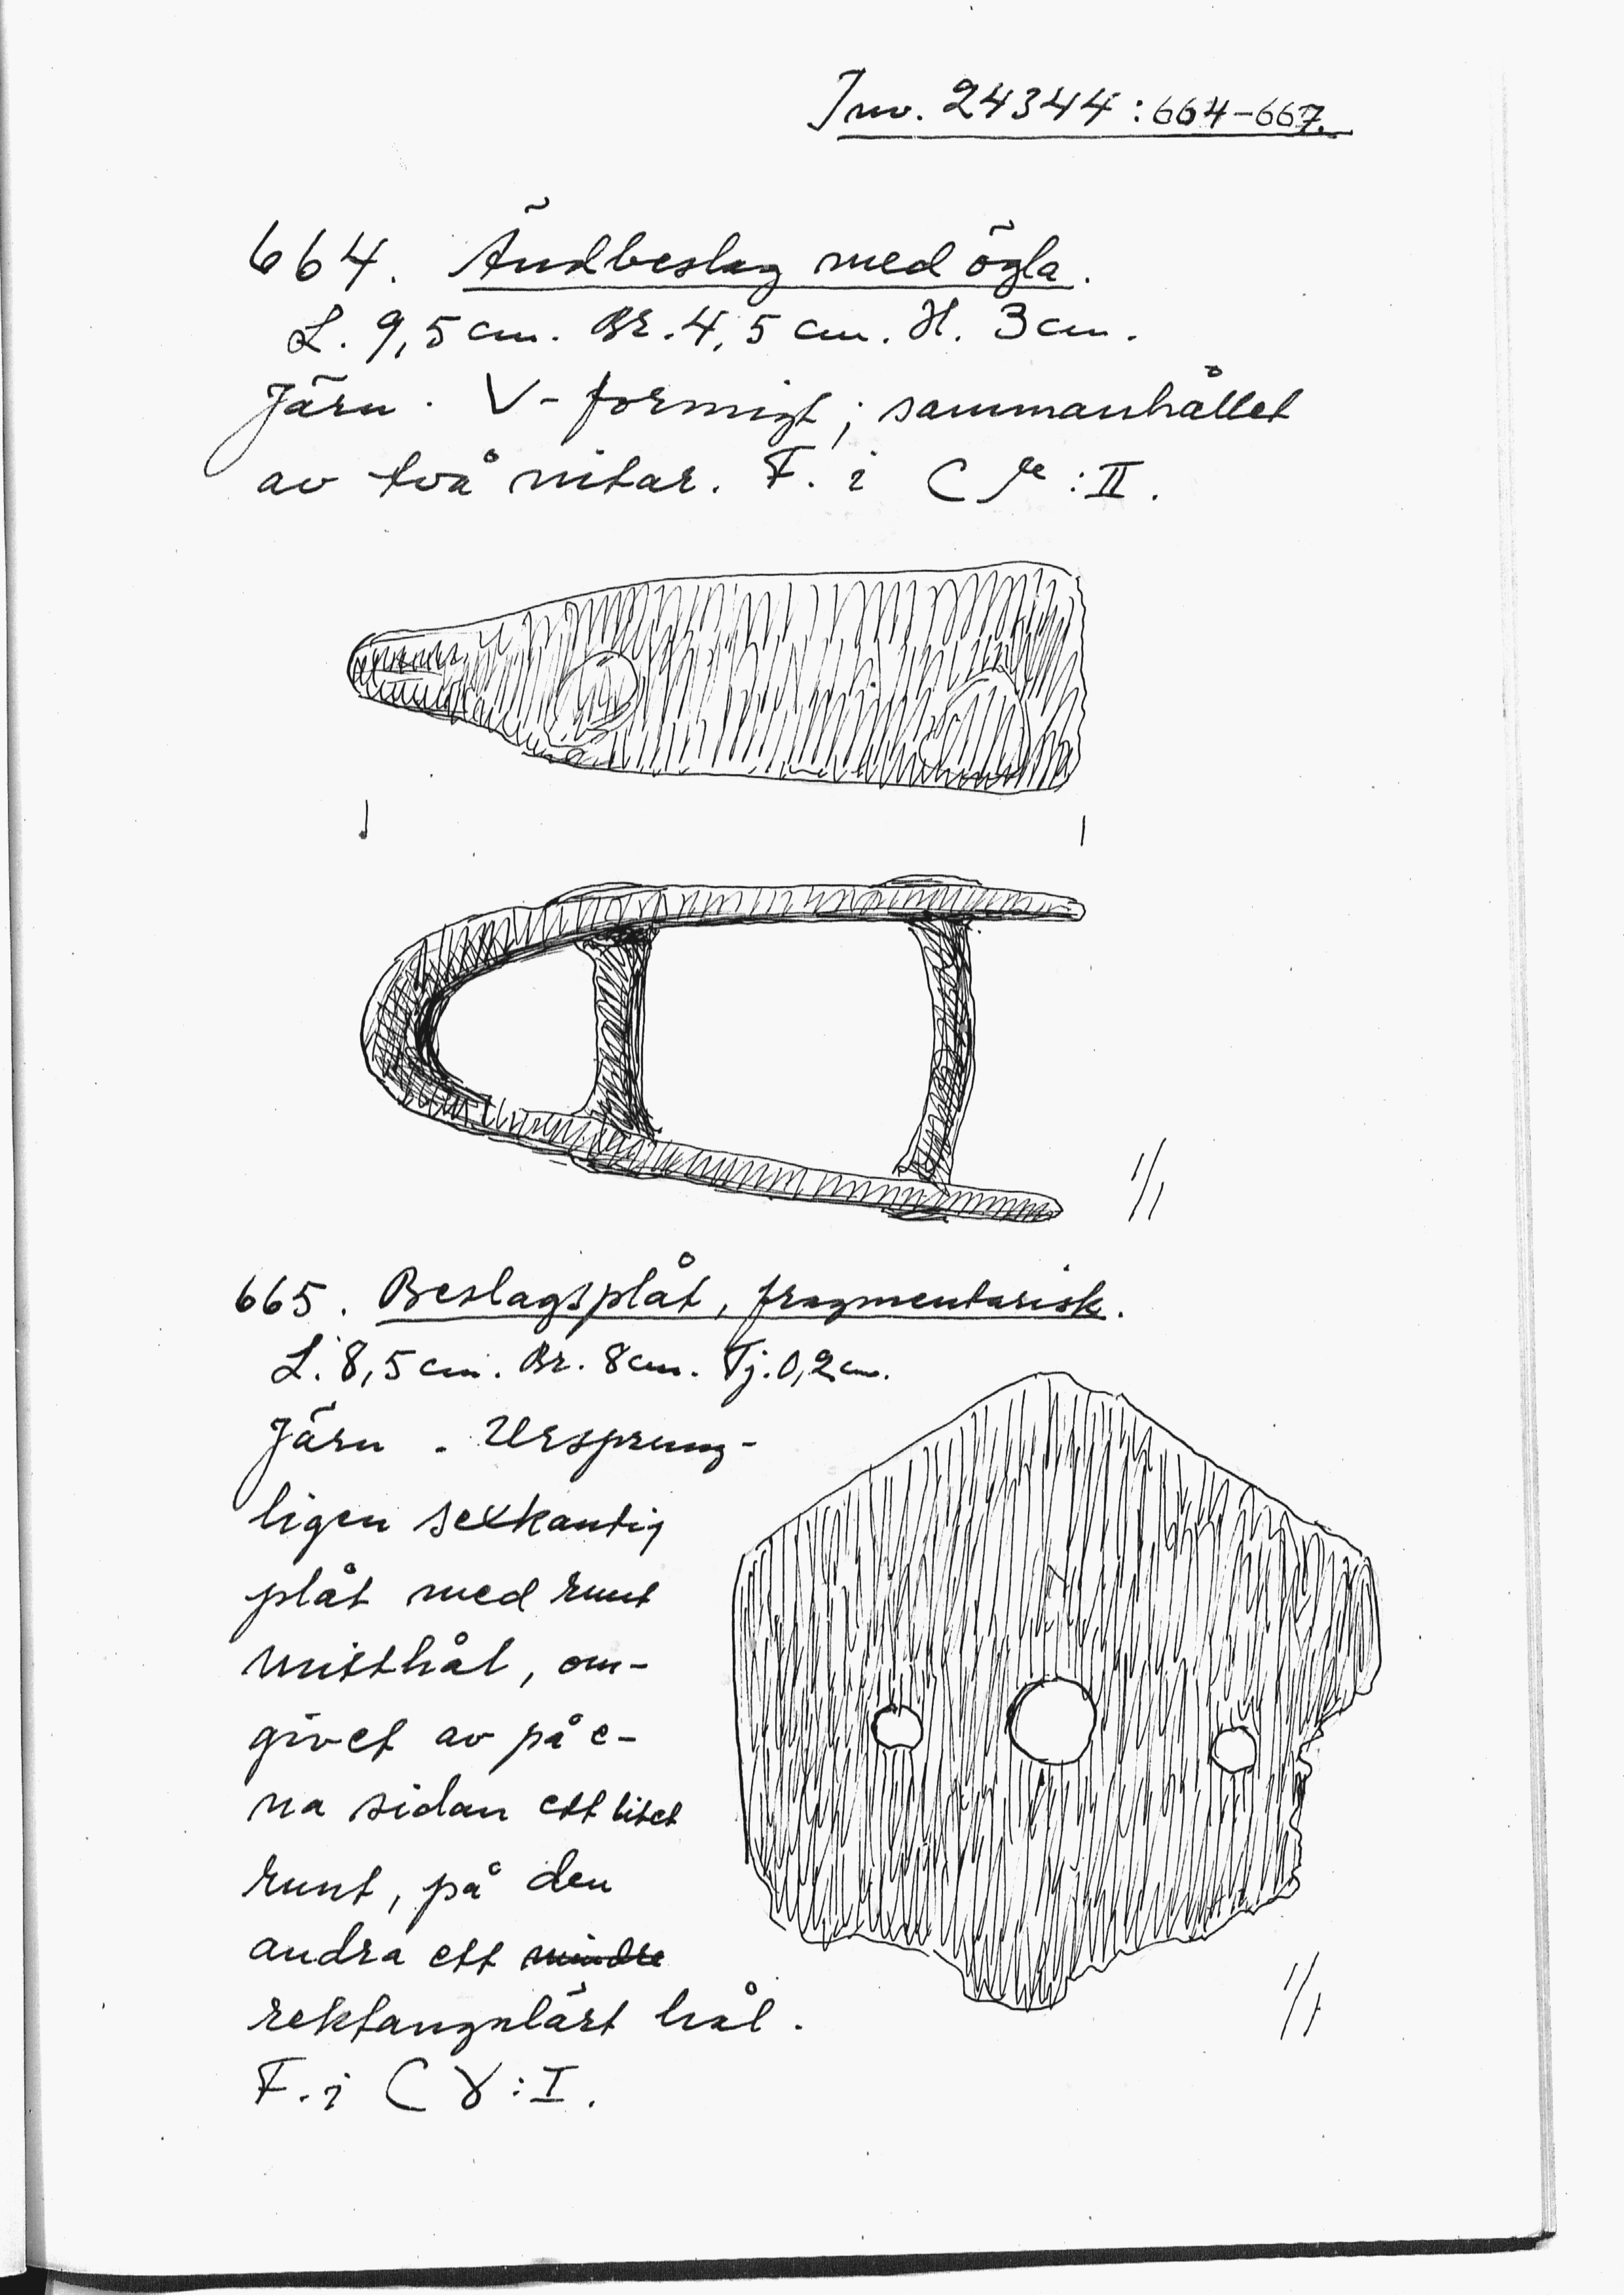 Inv. 24344:664-667.
664. Ändbeslag med ögla.
L. 9,5 cm. Br. 4,5 cm. H. 3 cm.
Järn. V-formigt; sammanhållet
av två nitar. F. i C :II.
1/1
665. Beslagsplåt, fragmentarisk.
L. 8,5 cm. Br. 8 cm. Tj. 0,2 cm.
Järn. Ursprung-
ligen sexkantig
plåt med runt
mitthål, om-
givet av på e-
na sidan ett litet
runt, på den
andra ett mindre
rektangulärt hål.
1/1
F. i C γ:I.